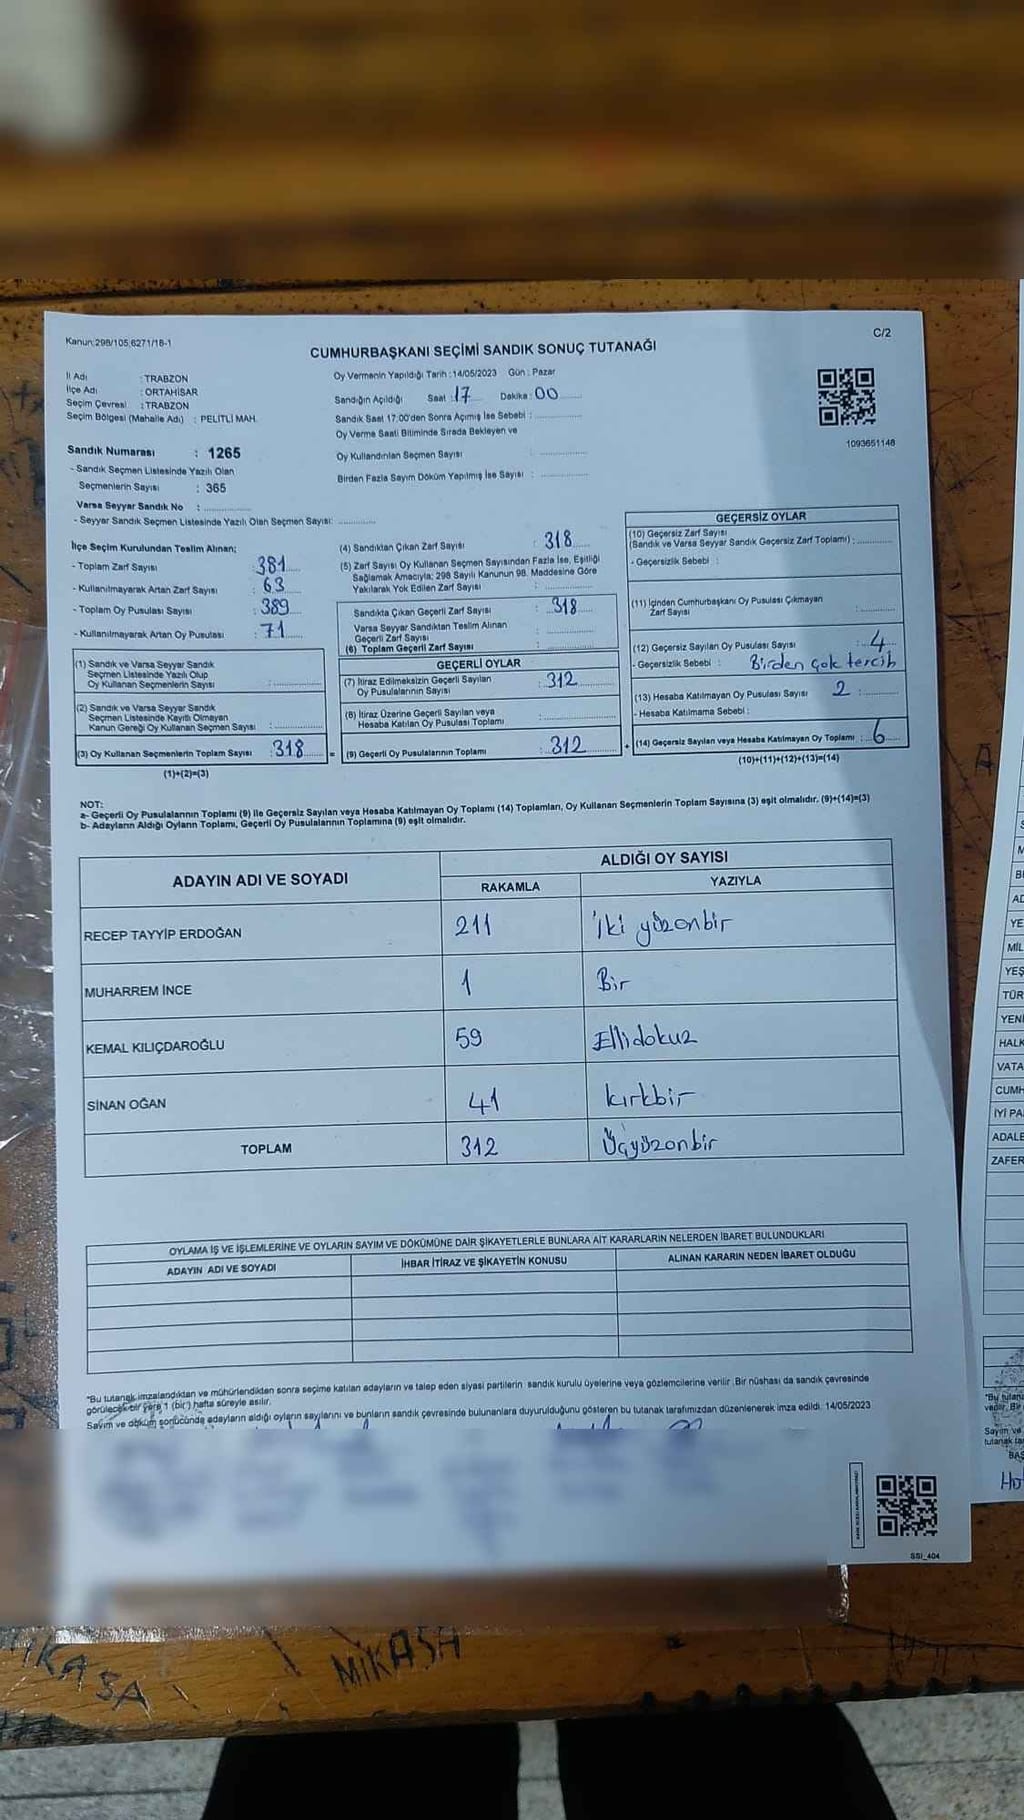 Kanun:298/105;6271/18-1
C/2
CUMHURBAŞKANI SEÇİMİ SANDIK SONUÇ TUTANAĞI
İl Adı : TRABZON
İlçe Adı : ORTAHİSAR
Seçim Çevresi : TRABZON
Seçim Bölgesi (Mahalle Adı) : PELİTLİ MAH.
Oy Vermenin Yapıldığı Tarih :14/05/2023 Gün : Pazar
Sandığın Açıldığı Saat :17 Dakika :00
Sandık Saat 17.00'den Sonra Açımış İse Sebebi :
Oy Verme Saati Bitiminde Sırada Bekleyen ve
Oy Kullandırılan Seçmen Sayısı :
Birden Fazla Sayım Döküm Yapılmış İse Sayısı :
1093651148
Sandık Numarası : 1265
- Sandık Seçmen Listesinde Yazılı Olan
Seçmenlerin Sayısı : 365
Varsa Seyyar Sandık No :
- Seyyar Sandık Seçmen Listesinde Yazılı Olan Seçmen Sayısı:
İlçe Seçim Kurulundan Teslim Alınan;
- Toplam Zarf Sayısı : 381
- Kullanılmayarak Artan Zarf Sayısı : 63
- Toplam Oy Pusulası Sayısı : 389
- Kullanılmayarak Artan Oy Pusulası : 71
(1) Sandık ve Varsa Seyyar Sandık
Seçmen Listesinde Yazılı Olup
Oy Kullanan Seçmenlerin Sayısı :
(2) Sandık ve Varsa Seyyar Sandık
Seçmen Listesinde Kayıtlı Olmayan
Kanun Gereği Oy Kullanan Seçmen Sayısı :
(3) Oy Kullanan Seçmenlerin Toplam Sayısı : 318
(1)+(2)=(3)
(4) Sandıktan Çıkan Zarf Sayısı : 318
(5) Zarf Sayısı Oy Kullanan Seçmen Sayısından Fazla İse, Eşitliği
Sağlamak Amacıyla; 298 Sayılı Kanunun 98. Maddesine Göre
Yakılarak Yok Edilen Zarf Sayısı :
Sandıkta Çıkan Geçerli Zarf Sayısı : 318
Varsa Seyyar Sandıktan Teslim Alınan
Geçerli Zarf Sayısı :
(6) Toplam Geçerli Zarf Sayısı :
GEÇERLİ OYLAR
(7) İtiraz Edilmeksizin Geçerli Sayılan
Oy Pusulalarının Sayısı : 312
(8) İtiraz Üzerine Geçerli Sayılan veya
Hesaba Katılan Oy Pusulası Toplamı :
= (9) Geçerli Oy Pusulalarının Toplamı : 312
GEÇERSİZ OYLAR
(10) Geçersiz Zarf Sayısı
(Sandık ve Varsa Seyyar Sandık Geçersiz Zarf Toplamı) :
- Geçersizlik Sebebi :
(11) İçinden Cumhurbaşkanı Oy Pusulası Çıkmayan
Zarf Sayısı :
(12) Geçersiz Sayılan Oy Pusulası Sayısı : 4
- Geçersizlik Sebebi : Birden çok tercih
(13) Hesaba Katılmayan Oy Pusulası Sayısı : 2
- Hesaba Katılmama Sebebi :
+ (14) Geçersiz Sayılan veya Hesaba Katılmayan Oy Toplamı : 6
(10)+(11)+(12)+(13)=(14)
NOT:
a- Geçerli Oy Pusulalarının Toplamı (9) ile Geçersiz Sayılan veya Hesaba Katılmayan Oy Toplamı (14) Toplamları, Oy Kullanan Seçmenlerin Toplam Sayısına (3) eşit olmalıdır. (9)+(14)=(3)
b- Adayların Aldığı Oyların Toplamı, Geçerli Oy Pusulalarının Toplamına (9) eşit olmalıdır.
ADAYIN ADI VE SOYADI
ALDIĞI OY SAYISI
RAKAMLA YAZIYLA
RECEP TAYYİP ERDOĞAN 211 İki yüzonbir
MUHARREM İNCE 1 Bir
KEMAL KILIÇDAROĞLU 59 Ellidokuz
SİNAN OĞAN 41 kırkbir
TOPLAM 312 Üçyüzonbir
OYLAMA İŞ VE İŞLEMLERİNE VE OYLARIN SAYIM VE DÖKÜMÜNE DAİR ŞİKAYETLERLE BUNLARA AİT KARARLARIN NELERDEN İBARET BULUNDUKLARI
ADAYIN ADI VE SOYADI İHBAR İTİRAZ VE ŞİKAYETİN KONUSU ALINAN KARARIN NEDEN İBARET OLDUĞU
"Bu tutanak imzalandıktan ve mühürlendikten sonra seçime katılan adayların ve talep eden siyasi partilerin sandık kurulu üyelerine veya gözlemcilerine verilir .Bir nüshası da sandık çevresinde
görülecek bir yere 1 (bir) hafta süreyle asılır.
Sayım ve döküm sonucunda adayların aldığı oyların sayılarını ve bunların sandık çevresinde bulunanlara duyurulduğunu gösteren bu tutanak tarafımızdan düzenlenerek imza edildi. 14/05/2023
SSI_404
MİL
YEŞ
TÜR
YENİ
HALK
VATA
CUMH
İYİ PA
ADALE
ZAFER
MIKASA